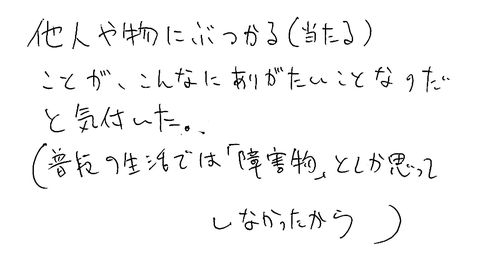 他人や物にぶつかる(当たる)
ことが、こんなにありがたいことなのだ
と気付いた。
(普段の生活では「障害物」としか思って
しなかったから)